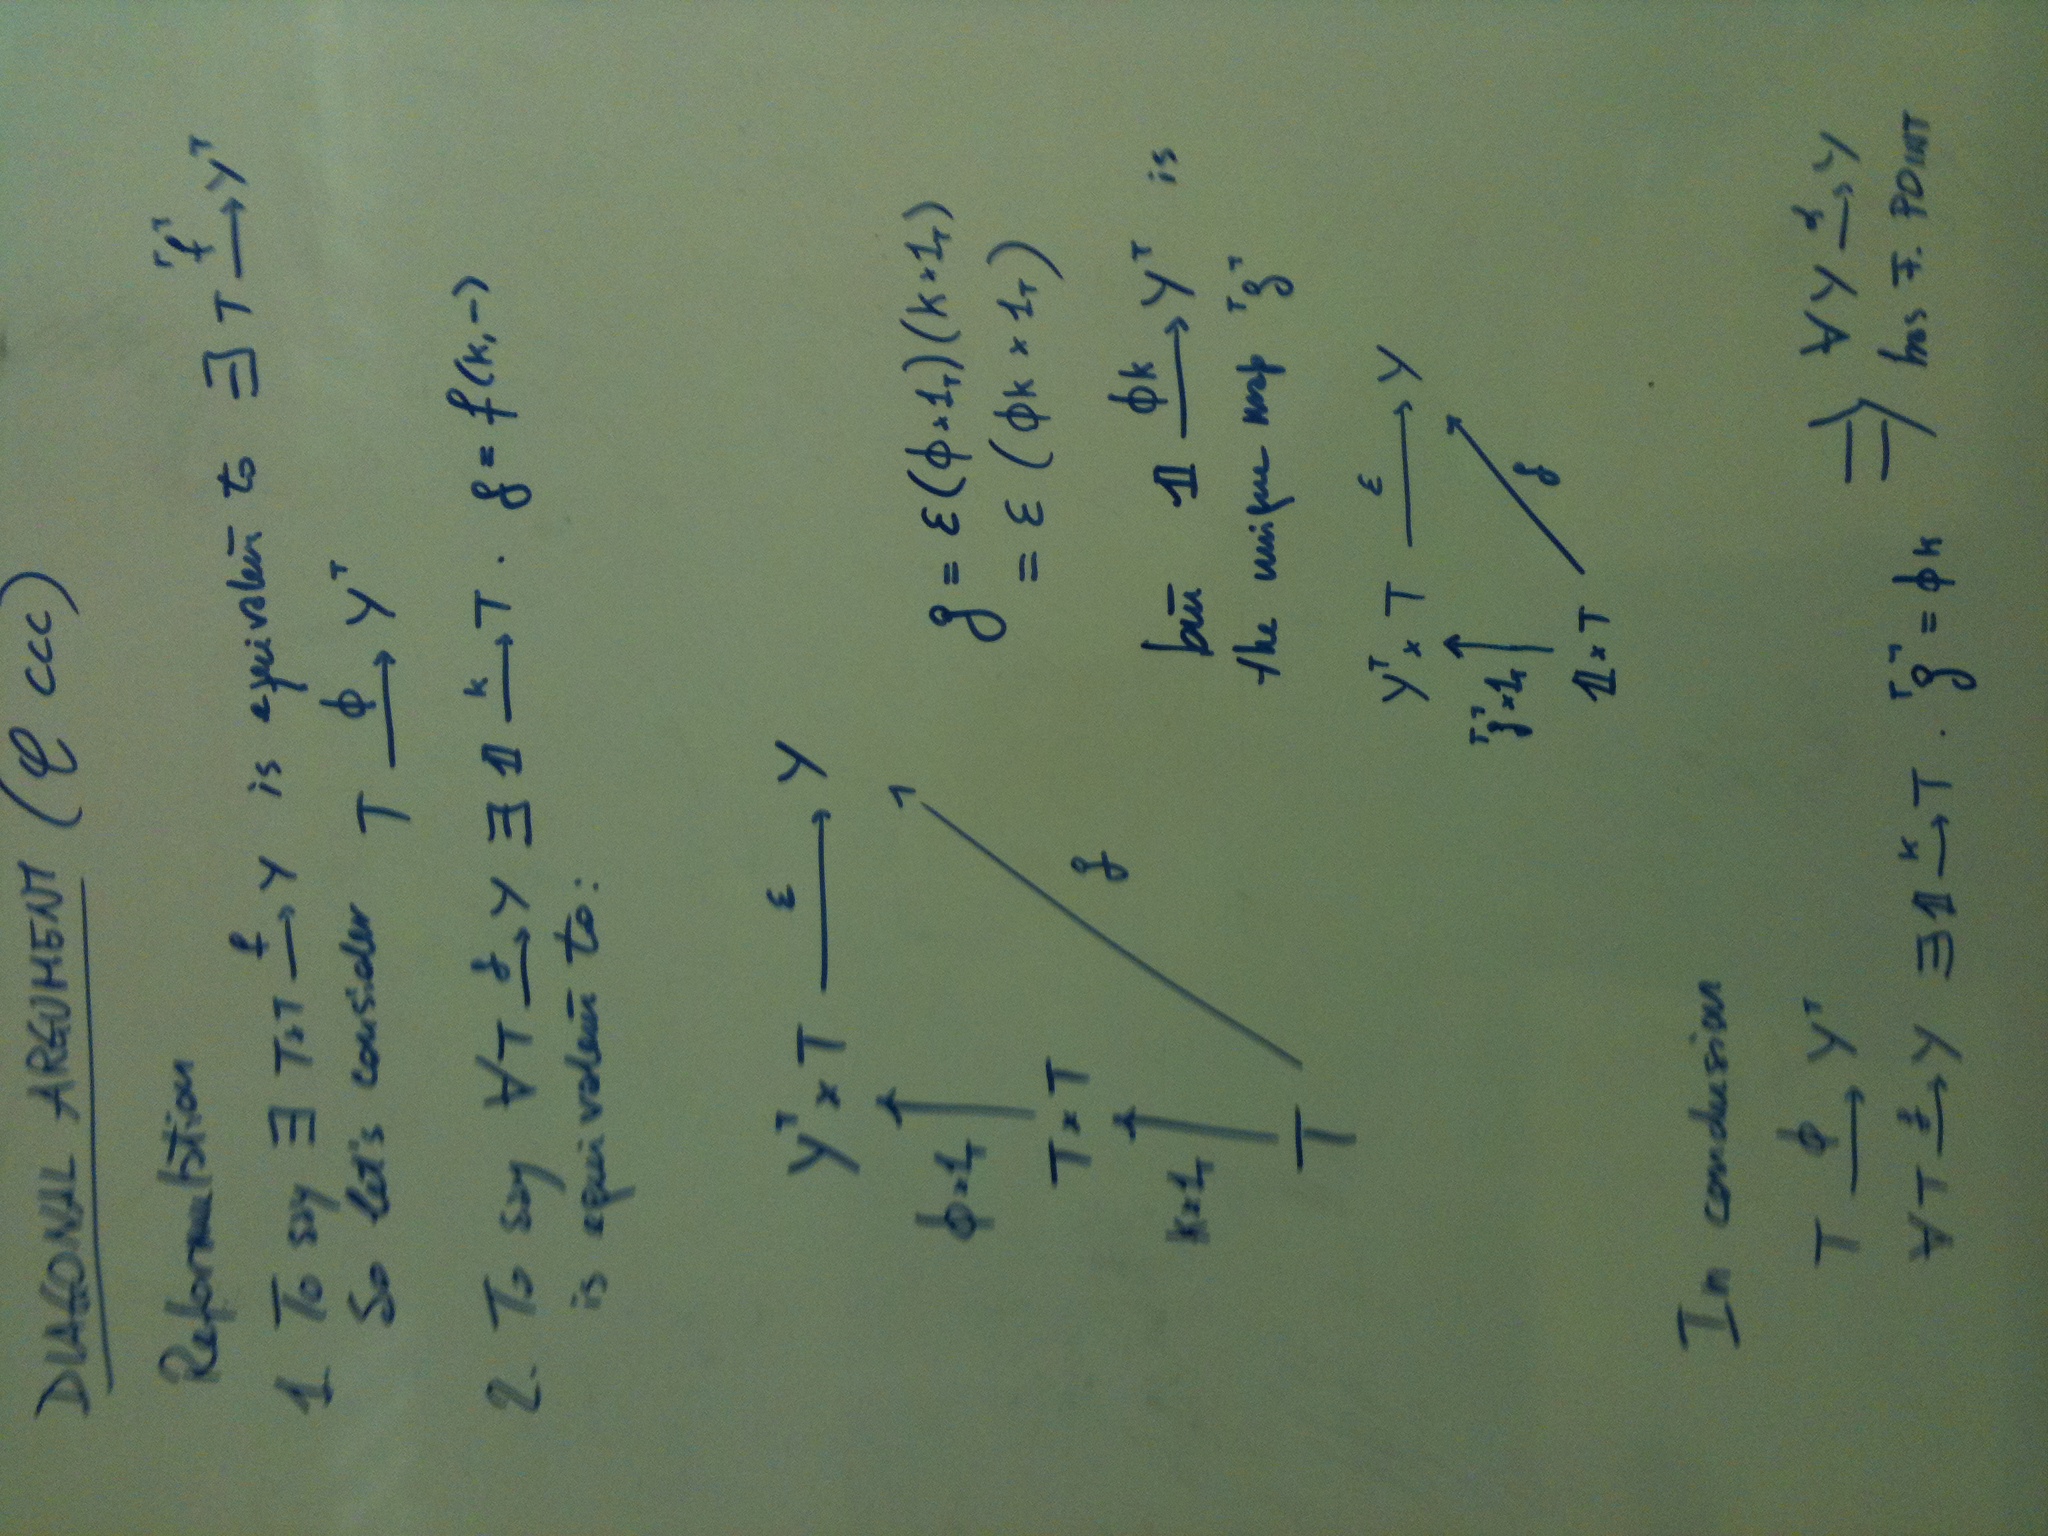 DIAGONAL ARGUMENT (𝒞 CCC)
Reformulation
1. To say ∃ T×T —f→ Y is equivalent to ∃ T —⌜f⌝→ Y^T
So let's consider T —ϕ→ Y^T
2. To say ∀T —g→ Y ∃ 𝟙 —k→ T . g = f(k,-)
is equivalent to:
Y^T × T —ε→ Y
ϕ×1_T
T×T
k×1_T
g
T
g = ε(ϕ×1_T)(k×1_T)
= ε (ϕk × 1_T)
but 𝟙 —ϕk→ Y^T is
the unique map ⌜g⌝
Y^T × T —ε→ Y
⌜g⌝×1_T
g
𝟙×T
In conclusion
T —ϕ→ Y^T
∀T —g→ Y ∃𝟙 —k→ T . ⌜g⌝ = ϕk
⇒ ∀Y —α→ Y
has F. POINT